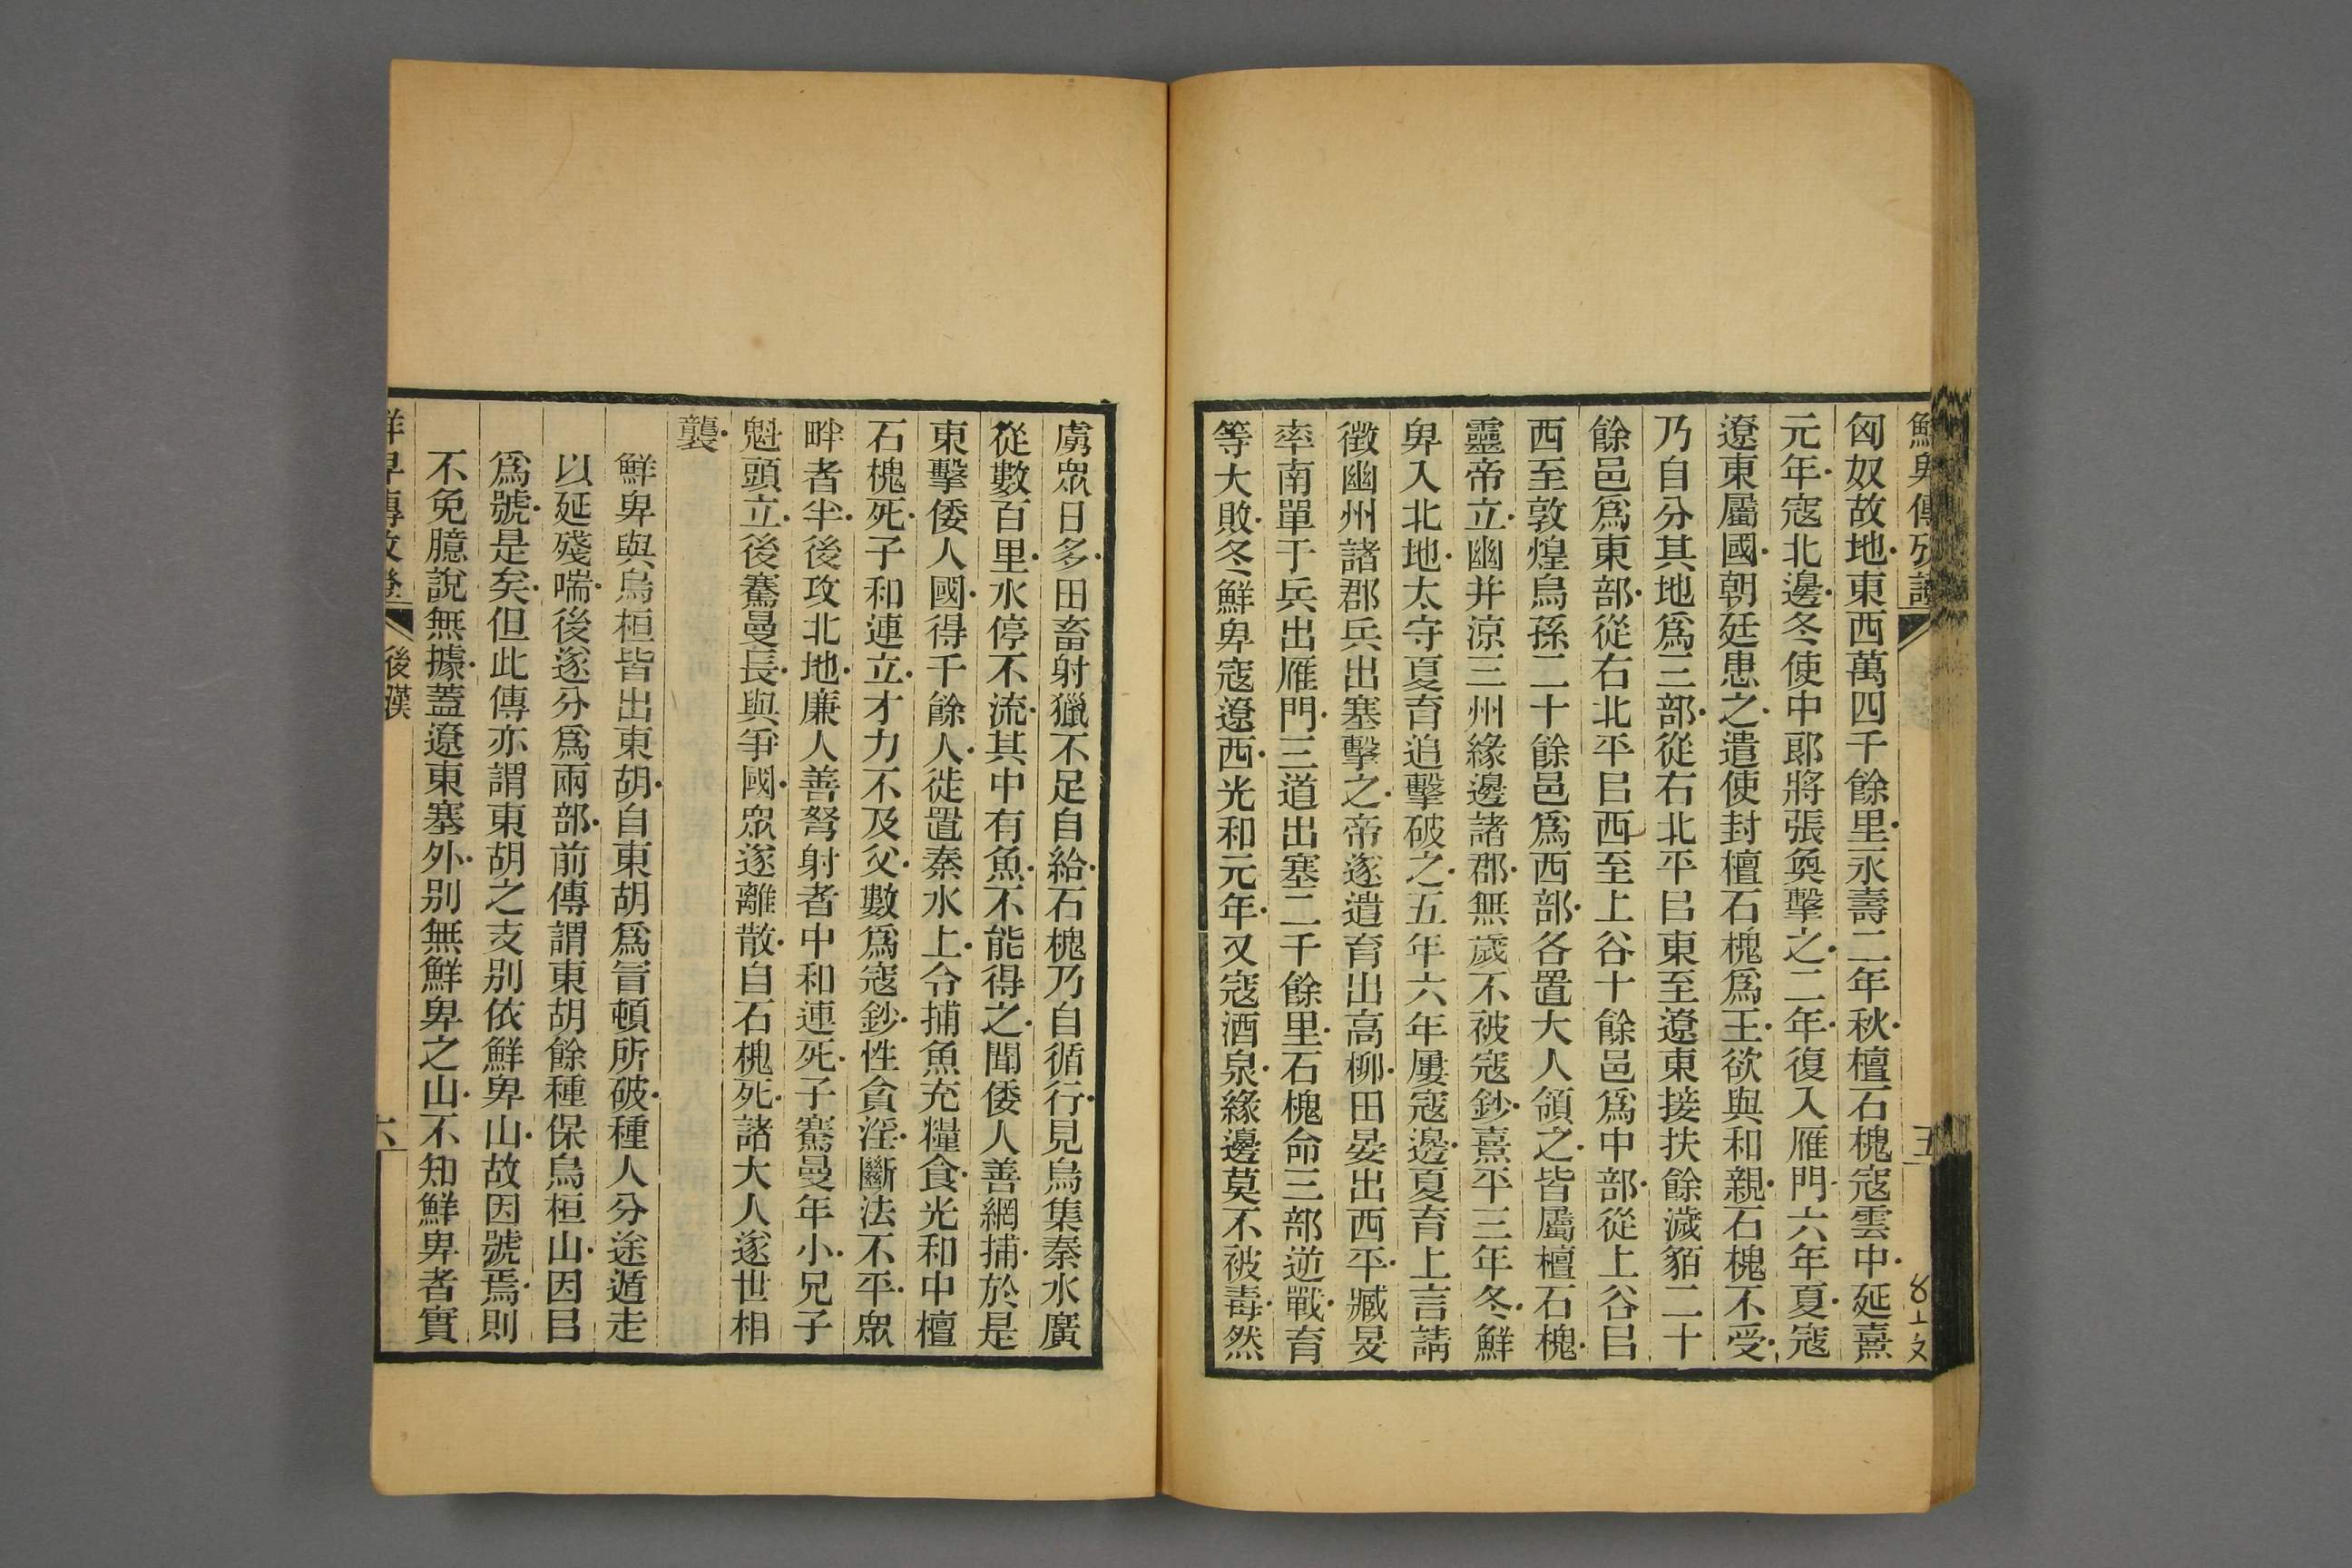 匈奴故地東西萬四千餘里永壽二年秋檀石槐寇雲中延熹
元年寇北邊冬使中郎將張奐擊之二年復入雁門六年夏寇
遼東屬國朝廷患之遣使封檀石槐爲王欲與和親石槐不受
乃自分其地爲三部從右北平㠯東至遼東接扶餘濊貊二十
餘邑爲東部從右北平㠯西至上谷十餘邑爲中部從上谷㠯
西至敦煌烏孫二十餘邑爲西部各置大人領之皆屬檀石槐
靈帝立幽并涼三州緣邊諸郡無歲不被寇鈔熹平三年冬鮮
卑入北地太守夏育追擊破之五年六年屢寇邊夏育上言請
徵幽州諸郡兵出塞擊之帝遂遣育出高柳田晏出西平臧旻
率南單于兵出雁門三道出塞二千餘里石槐命三部逆戰育
等大敗冬鮮卑寇遼西光和元年又寇酒泉緣邊莫不被毒然
虜眾日多田畜射獵不足自給石槐乃自循行見烏集秦水廣
從數百里水停不流其中有魚不能得之聞倭人善網捕於是
東擊倭人國得千餘人徙置秦水上令捕魚充糧食光和中檀
石槐死子和連立才力不及父數爲寇鈔性貪淫斷法不平眾
畔者半後攻北地廉人善弩射者中和連死子騫曼年小兄子
魁頭立後騫曼長與爭國眾遂離散自石槐死諸大人遂世相
襲
鮮卑與烏桓皆出東胡自東胡爲冒頓所破種人分途遁走
以延殘喘後遂分爲兩部前傳謂東胡餘種保烏桓山因㠯
爲號是矣但此傳亦謂東胡之支別依鮮卑山故因號焉則
不免臆說無據蓋遼東塞外別無鮮卑之山不知鮮卑者實
後漢
六